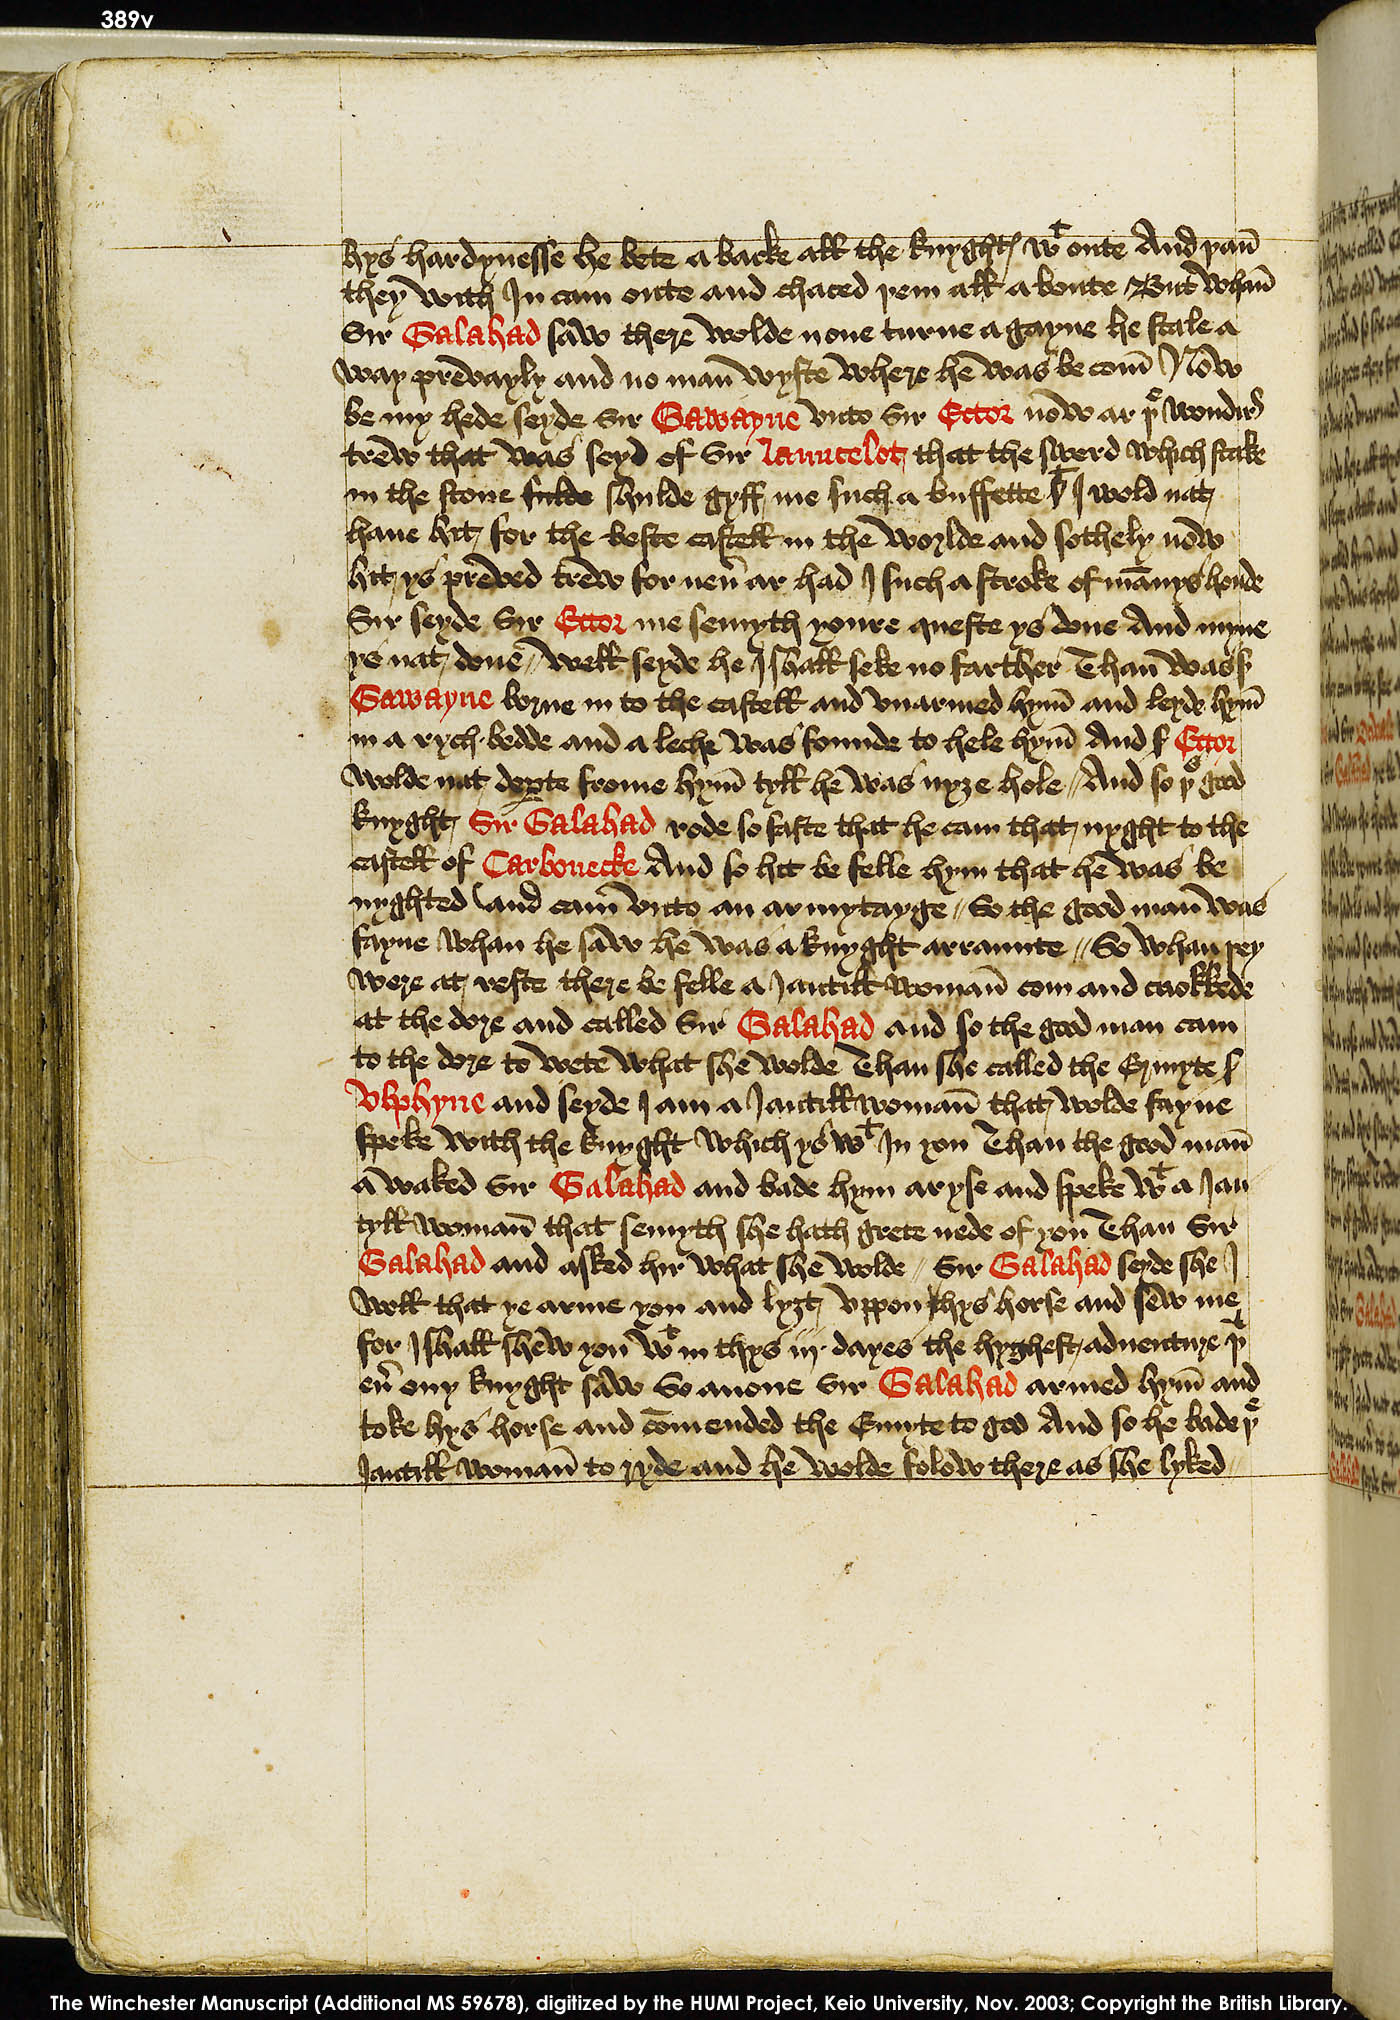 389v
hys hardynesse he bete a backe all the knyghtꝭ wt oute And þan̄
they with In cam oute and chaced þem all a boute But whan̄
Sir Galahad saw there wolde none turne a gayne he stale a
way prevayly and no man̄ wyste where he was be com̄ Now
be my hede seyde Sir Gawayne vnto Sir Ector now ar þe wondirs
trew that was seyd of Sir launcelot that the swerd which stake
in the stone sulde shulde gyff me such a buffette þt I wold nat
haue hit for the beste castell in the worlde and sothely now
hit ys preved trew for neu̾ ar had I such a stroke of mānys honde
Sir seyde Sir Ector me semyth youre queste ys done And myne
ys nat done // well seyde he I shall seke no farther Than̄ was ß
Gawayne borne in to the castell and vnarmed hym̄ and leyde hym̄
in a rych bedde and a leche was founde to hele hym̄ And ß Ector
wolde nat deꝑte frome hym̄ tyll he was nyȝe hole // And so þs good
knyght Sir Galahad rode so faste that he cam that nyght to the
castell of Carbonecke And so hit be felle hym that he was be
nyghted and cam̄ vnto an armytayge // So the good man̄ was
fayne whan he saw he was a knyght arraunte // So whan þey
were at reste there be felle a Jantill woman̄ com and cnokkede
at the dore and called Sir Galahad and so the good man cam
to the dore to wete what she wolde Than she called the Ermyte ß
Vlphyne and seyde I am a Jantill woman̄ that wolde fayne
speke with the knyght which ys wt In you Than the good man̄
a waked Sir Galahad and bade hym aryse and speke wt a Jan
tyll woman̄ that semyth she hath grete nede of you Than Sir
Galahad and asked hir what she wolde // Sir Galahad seyde she I
woll that ye arme you and lyȝt vppon thys horse and sew me
for I shall shew you wt in thys iij dayes the hyghest adventure þt
eu̾ ony knyght saw So anone Sir Galahad armed hym̄ and
toke hys horse and cōmended the Ermyte to god And so he bade þe
Jantill woman̄ to ryde and he wolde folow there as she lyked //
The Winchester Manuscript (Additional MS 59678), digitized by the HUMI Project, Keio University, Nov. 2003; Copyright the British Library.